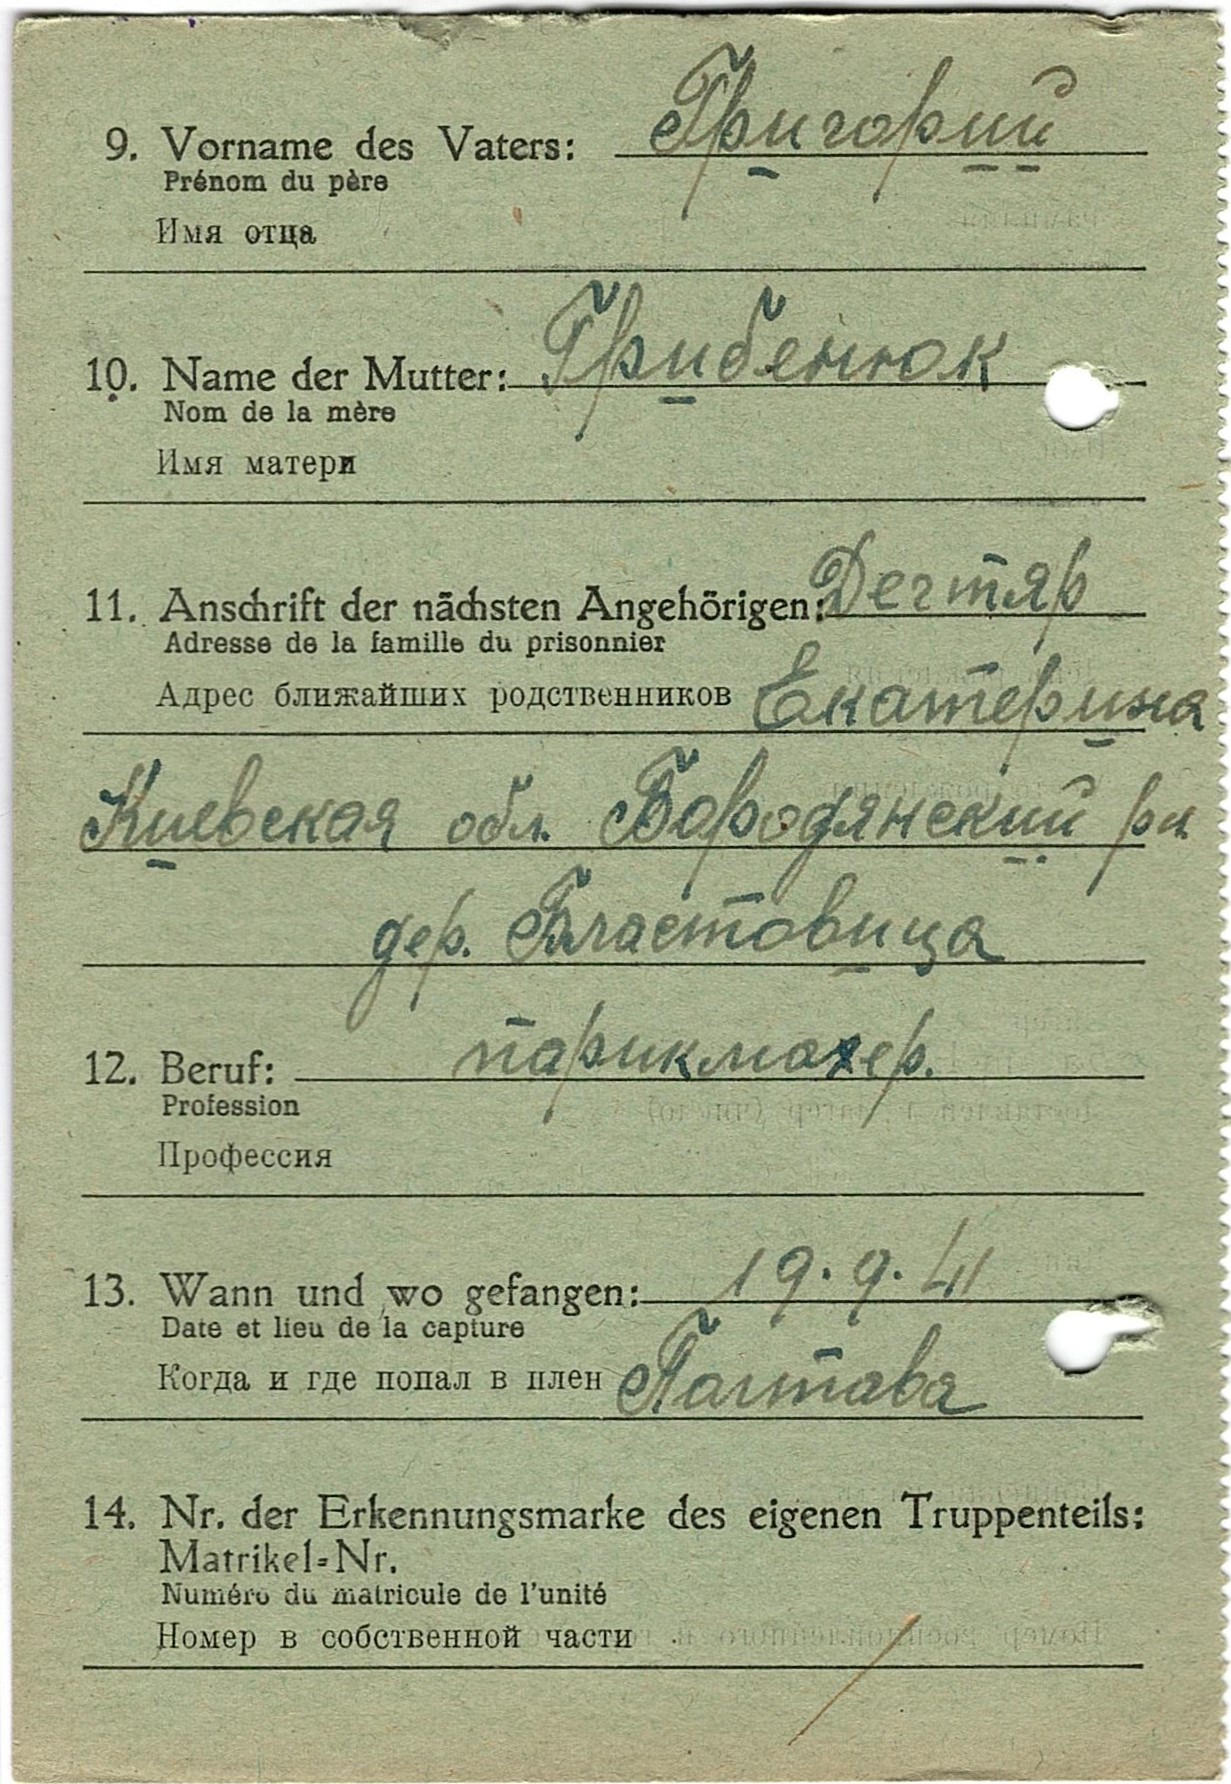 9. Vorname des Vaters: Григорий
Prénom du père
Имя отца
10. Name der Mutter: Грибенюк
Nom de la mère
Имя матери
11. Anschrift der nächsten Angehörigen: Дегтяр
Adresse de la famille du prisonnier
Адрес ближайших родственников Екатерина
Киевская обл. Бородянский рн
дер. Бластовица
12. Beruf: парикмахер.
Profession
Профессия
13. Wann und wo gefangen: 19.9.41
Date et lieu de la capture
Когда и где попал в плен Полтава
14. Nr. der Erkennungsmarke des eigenen Truppenteils:
Matrikel-Nr.
Numéro du matricule de l'unité
Номер в собственной части